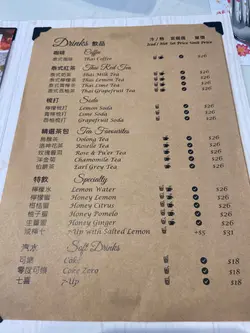 Drinks 飲品
咖啡 Coffee
泰式咖啡 Thai Coffee $26
泰式紅茶 Thai Red Tea
泰式奶茶 Thai Milk Tea $26
泰式檸檬茶 Thai Lemon Tea $26
泰式青檸茶 Thai Lime Tea $26
泰式西柚茶 Thai Grapefruit Tea $26
梳打 Soda
檸檬梳打 Lemon Soda $26
青檸梳打 Lime Soda $26
西柚梳打 Grapefruit Soda $26
精選茶包 Tea Favourites
烏龍茶 Oolong Tea $26
洛神花茶 Roselle Tea $26
玫瑰普洱 Rose & Pu'er Tea $26
洋金菊 Chamomile Tea $26
伯爵茶 Earl Grey Tea $26
特飲 Specialty
檸檬水 Lemon Water $26
檸檬蜜 Honey Lemon $26
柑桔蜜 Honey Citrus $26
柚子蜜 Honey Pomelo $26
生薑蜜 Honey Ginger $26
鹹檸七 7-Up with Salted Lemon +$5 $31
汽水 Soft Drinks
可樂 Coke $18
零度可樂 Coke Zero $18
七喜 7-Up $18